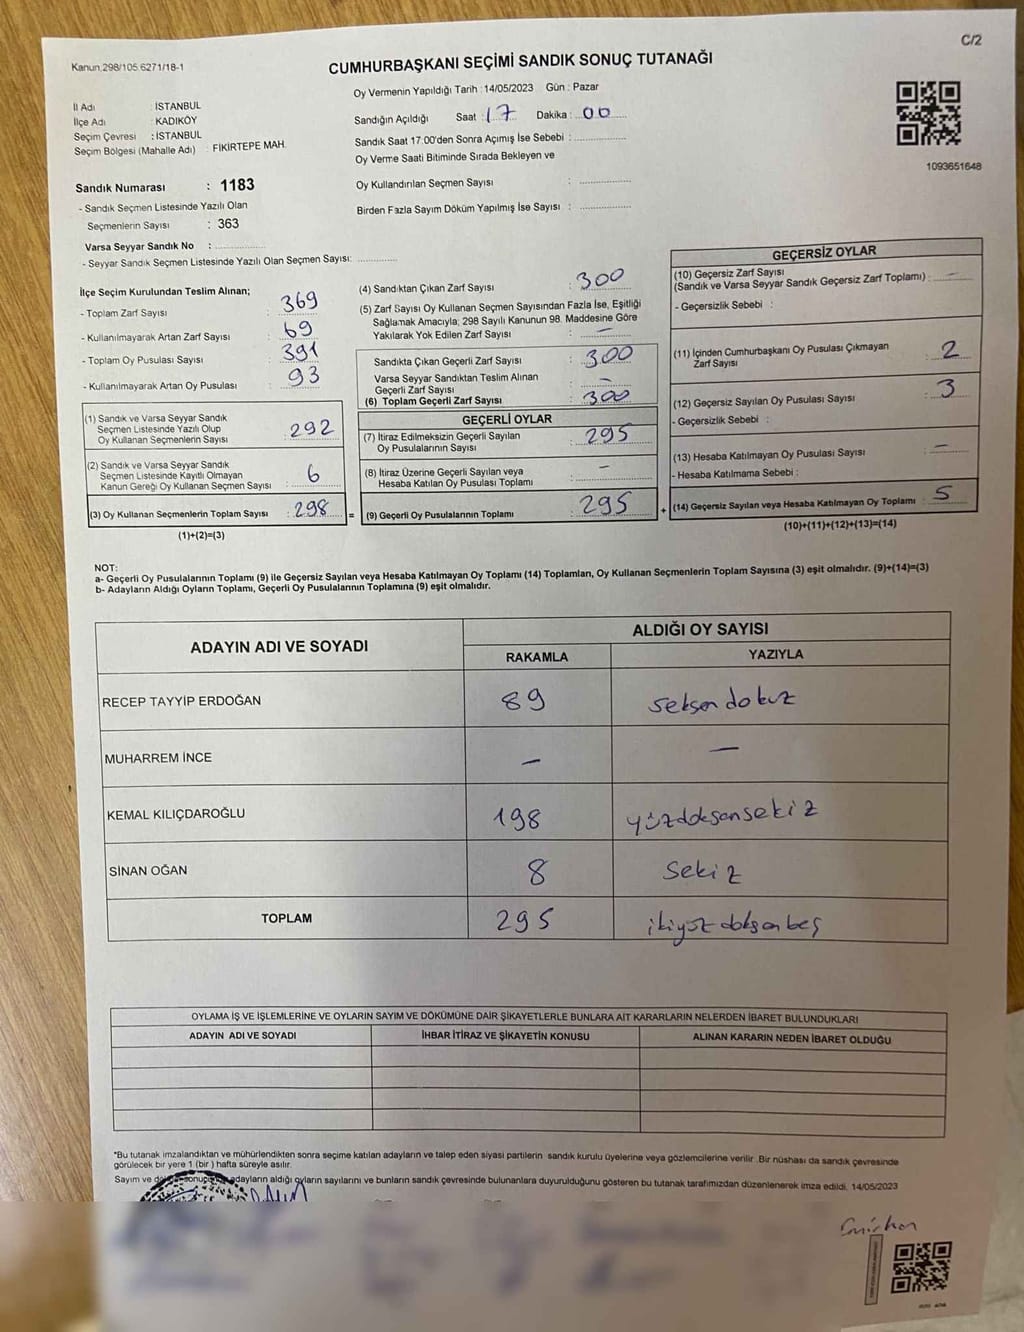 C/2
Kanun 298/105 6271/18-1
CUMHURBAŞKANI SEÇİMİ SANDIK SONUÇ TUTANAĞI
Oy Vermenin Yapıldığı Tarih : 14/05/2023 Gün : Pazar
İl Adı : İSTANBUL
İlçe Adı : KADIKÖY
Seçim Çevresi : İSTANBUL
Seçim Bölgesi (Mahalle Adı) : FİKİRTEPE MAH.
Sandığın Açıldığı Saat : 17 Dakika : 00
Sandık Saat 17.00'den Sonra Açımış İse Sebebi :
Oy Verme Saati Bitiminde Sırada Bekleyen ve
Oy Kullandırılan Seçmen Sayısı :
Birden Fazla Sayım Döküm Yapılmış İse Sayısı :
1093651648
Sandık Numarası : 1183
- Sandık Seçmen Listesinde Yazılı Olan
Seçmenlerin Sayısı : 363
Varsa Seyyar Sandık No :
- Seyyar Sandık Seçmen Listesinde Yazılı Olan Seçmen Sayısı:
İlçe Seçim Kurulundan Teslim Alınan;
- Toplam Zarf Sayısı : 369
- Kullanılmayarak Artan Zarf Sayısı : 69
- Toplam Oy Pusulası Sayısı : 391
- Kullanılmayarak Artan Oy Pusulası : 93
(1) Sandık ve Varsa Seyyar Sandık
Seçmen Listesinde Yazılı Olup
Oy Kullanan Seçmenlerin Sayısı : 292
(2) Sandık ve Varsa Seyyar Sandık
Seçmen Listesinde Kayıtlı Olmayan
Kanun Gereği Oy Kullanan Seçmen Sayısı : 6
(3) Oy Kullanan Seçmenlerin Toplam Sayısı : 298 =
(1)+(2)=(3)
(4) Sandıktan Çıkan Zarf Sayısı : 300
(5) Zarf Sayısı Oy Kullanan Seçmen Sayısından Fazla İse, Eşitliği
Sağlamak Amacıyla; 298 Sayılı Kanunun 98. Maddesine Göre
Yakılarak Yok Edilen Zarf Sayısı : –
Sandıkta Çıkan Geçerli Zarf Sayısı : 300
Varsa Seyyar Sandıktan Teslim Alınan
Geçerli Zarf Sayısı : –
(6) Toplam Geçerli Zarf Sayısı : 300
GEÇERLİ OYLAR
(7) İtiraz Edilmeksizin Geçerli Sayılan
Oy Pusulalarının Sayısı : 295
(8) İtiraz Üzerine Geçerli Sayılan veya
Hesaba Katılan Oy Pusulası Toplamı : –
(9) Geçerli Oy Pusulalarının Toplamı : 295 +
GEÇERSİZ OYLAR
(10) Geçersiz Zarf Sayısı
(Sandık ve Varsa Seyyar Sandık Geçersiz Zarf Toplamı) : –
- Geçersizlik Sebebi :
(11) İçinden Cumhurbaşkanı Oy Pusulası Çıkmayan
Zarf Sayısı : 2
(12) Geçersiz Sayılan Oy Pusulası Sayısı : 3
- Geçersizlik Sebebi :
(13) Hesaba Katılmayan Oy Pusulası Sayısı : –
- Hesaba Katılmama Sebebi :
(14) Geçersiz Sayılan veya Hesaba Katılmayan Oy Toplamı : 5
(10)+(11)+(12)+(13)=(14)
NOT:
a- Geçerli Oy Pusulalarının Toplamı (9) ile Geçersiz Sayılan veya Hesaba Katılmayan Oy Toplamı (14) Toplamları, Oy Kullanan Seçmenlerin Toplam Sayısına (3) eşit olmalıdır. (9)+(14)=(3)
b- Adayların Aldığı Oyların Toplamı, Geçerli Oy Pusulalarının Toplamına (9) eşit olmalıdır.
ADAYIN ADI VE SOYADI
ALDIĞI OY SAYISI
RAKAMLA YAZIYLA
RECEP TAYYİP ERDOĞAN 89 seksen dokuz
MUHARREM İNCE – –
KEMAL KILIÇDAROĞLU 198 yüzdoksansekiz
SİNAN OĞAN 8 sekiz
TOPLAM 295 ikiyüzdoksanbeş
OYLAMA İŞ VE İŞLEMLERİNE VE OYLARIN SAYIM VE DÖKÜMÜNE DAİR ŞİKAYETLERLE BUNLARA AİT KARARLARIN NELERDEN İBARET BULUNDUKLARI
ADAYIN ADI VE SOYADI İHBAR İTİRAZ VE ŞİKAYETİN KONUSU ALINAN KARARIN NEDEN İBARET OLDUĞU
*Bu tutanak imzalandıktan ve mühürlendikten sonra seçime katılan adayların ve talep eden siyasi partilerin sandık kurulu üyelerine veya gözlemcilerine verilir. Bir nüshası da sandık çevresinde
görülecek bir yere 1 (bir ) hafta süreyle asılır.
Sayım ve adayların aldığı oyların sayılarını ve bunların sandık çevresinde bulunanlara duyurulduğunu gösteren bu tutanak tarafımızdan düzenlenerek imza edildi. 14/05/2023